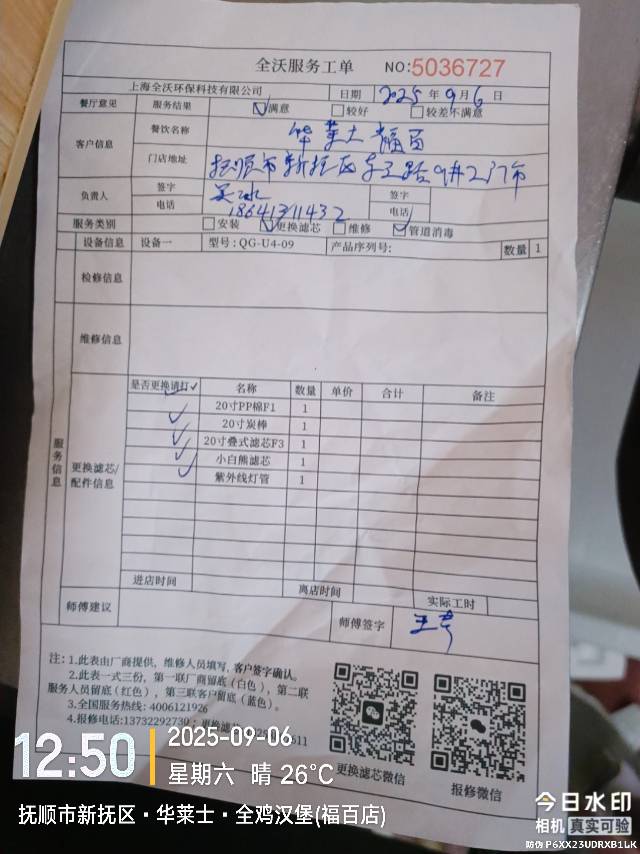 全沃服务工单 NO:5036727
上海全沃环保科技有限公司 日期 2025年9月6日
餐厅意见 服务结果 ☑满意 □较好 □较差不满意
客户信息 餐饮名称 华莱士福百
门店地址 抚顺市新抚区
负责人 签字 签字
电话 18641311432 电话
服务类别 □安装 ☑更换滤芯 □维修 ☑管道消毒
设备信息 设备一 型号:QG-U4-09 产品序列号: 数量 1
检修信息
维修信息
服务信息
更换滤芯/配件信息
是否更换请打✓ 名称 数量 单价 合计 备注
✓ 20寸PP棉F1 1
✓ 20寸炭棒 1
✓ 20寸叠式滤芯F3 1
✓ 小白熊滤芯 1
✓ 紫外线灯管 1
进店时间 离店时间 实际工时
师傅建议 师傅签字
注:1.此表由厂商提供,维修人员填写,客户签字确认。
2.此表一式三份,第一联厂商留底(白色),第二联
服务人员留底(红色),第三联客户留底(蓝色)。
3.全国服务热线:4006121926
4.报修电话:13732292730;更换滤芯
更换滤芯微信 报修微信
12:50 2025-09-06
星期六 晴 26°C
抚顺市新抚区·华莱士·全鸡汉堡(福百店)
今日水印
相机 真实可验
防伪 P6XX23UDRXB1LK